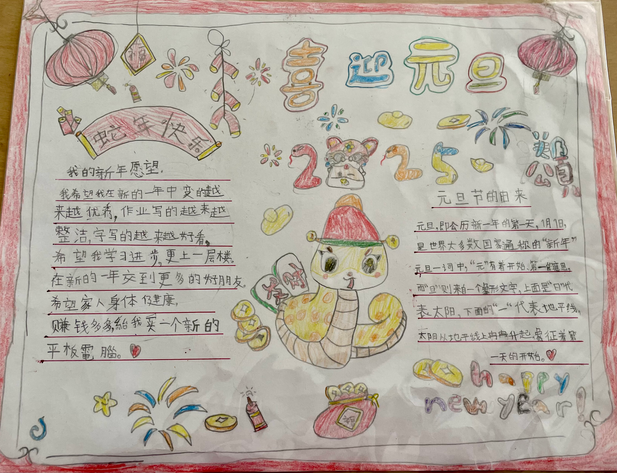 喜迎元旦
蛇年快乐
2025
我的新年愿望.
我希望我在新的一年中变的越
来越优秀,作业写的越来越
整洁,字写的越来越好看,
希望我学习进步更上一层楼,
在新的一年交到更多的好朋友
希望家人身体健康,
赚钱多多给我买一个新的
平板電腦。
发财
元旦节的由来
元旦,即公历新一年的第一天,1月1日,
是世界大多数国家通称的"新年"
元旦一词中,"元"有着开始、第一的意思,
而"旦"则来自一个象形文字,上面是"日"代
表太阳,下面的"一"代表地平线,
太阳从地平线上冉冉升起,象征着新
一天的开始。
happy
new year!